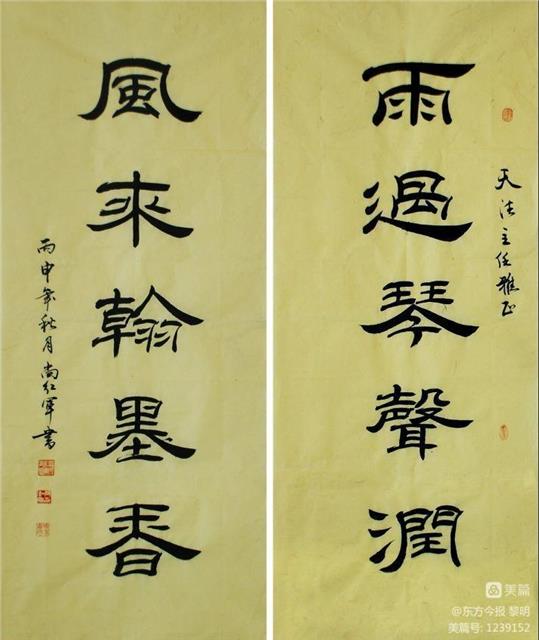 天法主任雅正
雨過琴聲潤
風来翰墨香
丙申年秋月尚红軍書
美篇
@东方今报 黎明
美篇号: 1239152